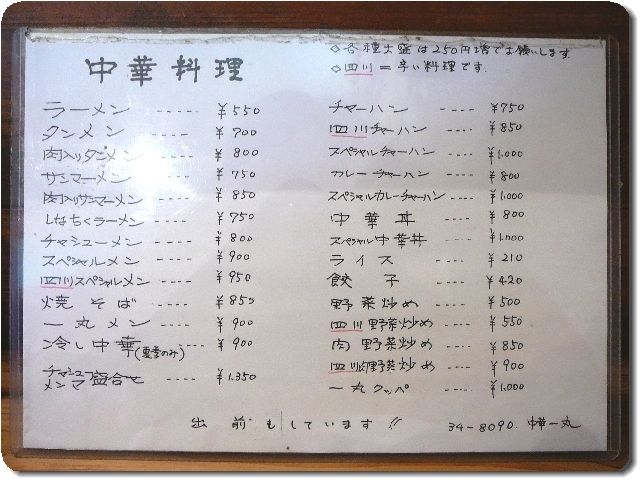 中華料理
◇各種大盛は250円増でお願いします.
◇四川=辛い料理です.
ラーメン ----- ¥550
タンメン ----- ¥700
肉入りタンメン ---- ¥800
サンマーメン ---- ¥750
肉入りサンマーメン ---- ¥850
しなちくラーメン ---- ¥750
チャシューメン ---- ¥800
スペシャルメン ---- ¥900
四川スペシャルメン ---- ¥950
焼そば ---- ¥850
一丸メン ---- ¥900
冷し中華(夏季のみ) ----- ¥900
チャシュー
メンマ盛合せ ---- ¥1.350
チャーハン ---- ¥750
四川チャーハン ---- ¥850
スペシャルチャーハン ---- ¥1.000
カレーチャーハン ---- ¥800
スペシャルカレーチャーハン ---- ¥1.000
中華丼 ---- ¥800
スペシャル中華丼 ---- ¥1.000
ライス ---- ¥210
餃子 ---- ¥420
野菜炒め ---- ¥500
四川野菜炒め ---- ¥550
肉野菜炒め ---- ¥850
四川肉野菜炒め ---- ¥900
一丸クッパ ---- ¥1.000
出前もしています!! 34-8090. 中華一丸